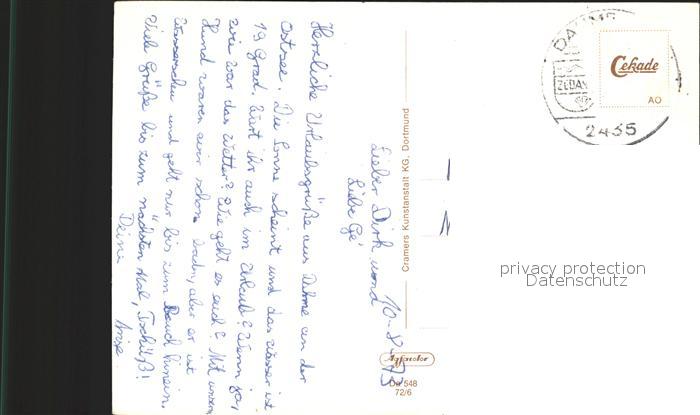 10-8-73
Lieber Dirk und
Liebe
Herzliche Urlaubsgrüße aus Dahme an der
Ostsee. Die Sonne scheint und das Wasser ist
19 Grad. Wart ihr auch im Urlaub? Wenn ja,
wie war das Wetter? Wie geht es euch? Mit unserem
Hund waren wir schon baden, aber er ist
Wasserscheu und geht nur bis zum Bauch hinein.
Viele Grüße bis zum nächsten Mal, Tschüß!
Deine
Cramers Kunstanstalt KG, Dortmund
Agfacolor
548
72/6
DAHME
2435
Cekade
AO
privacy protection
Datenschutz